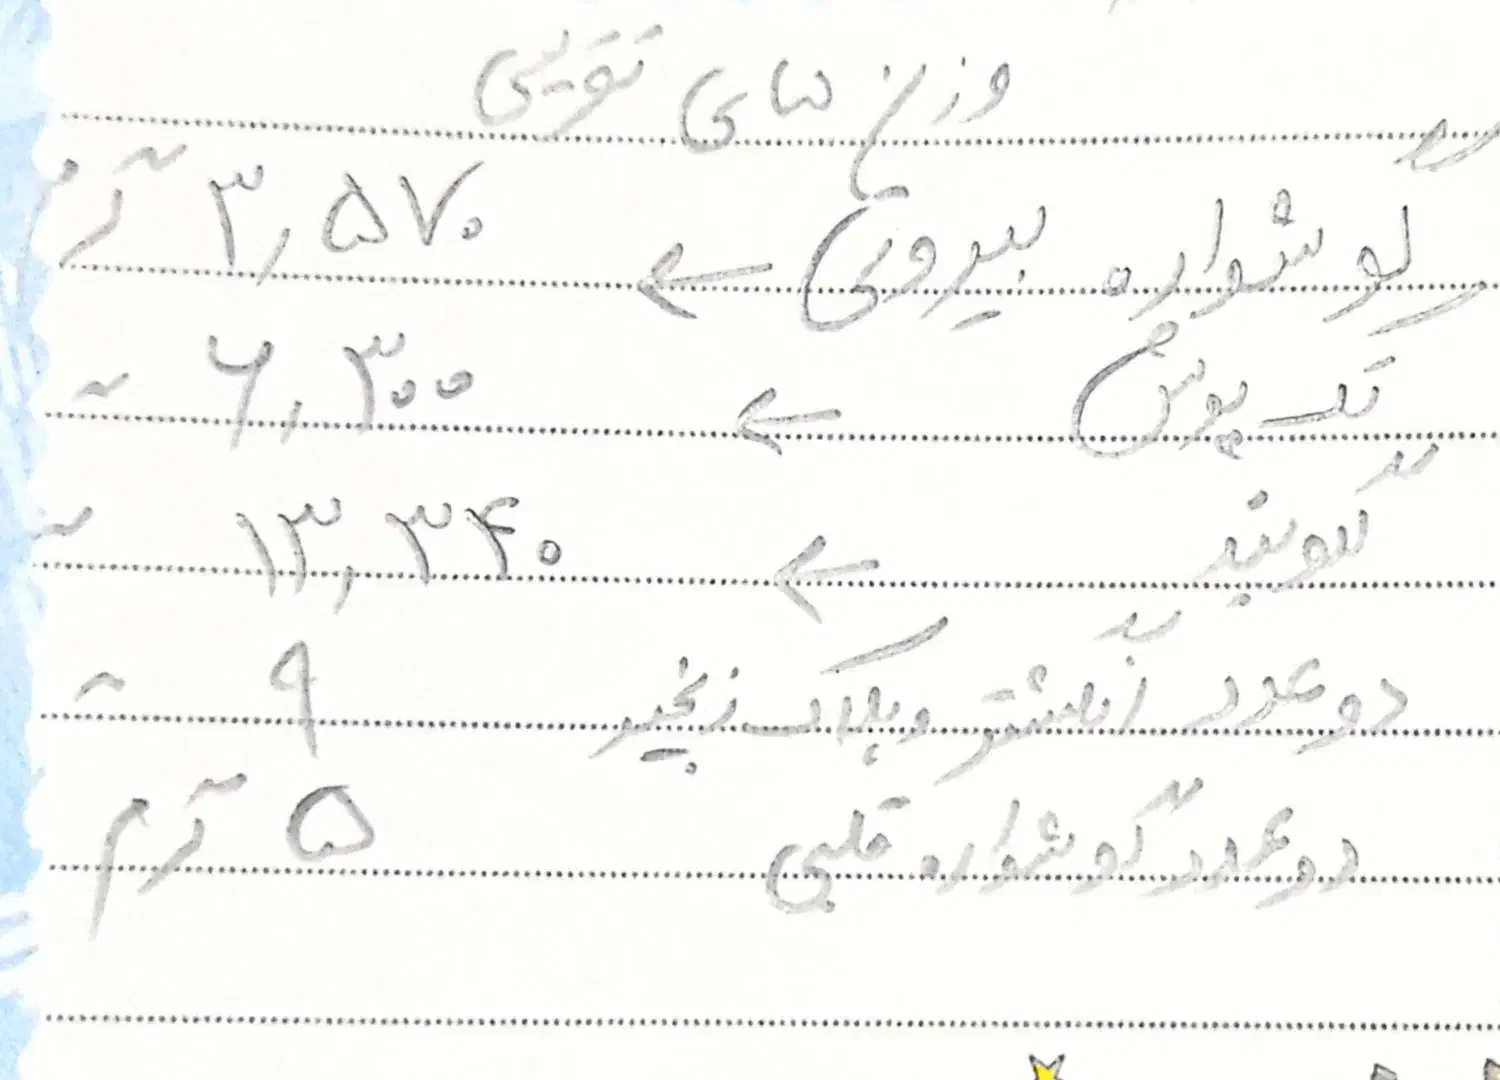 وزن های تقریبی
گوشواره بیرونی ← ۳,۵۷۰ گرم
تک پوش ← ۶,۳۰۰ ~
گلوبند ← ۱۳,۳۴۰ ~
دو عدد انگشتر و پلاک زنجیر ۹ ~
دو عدد گوشواره قلبی ۵ گرم